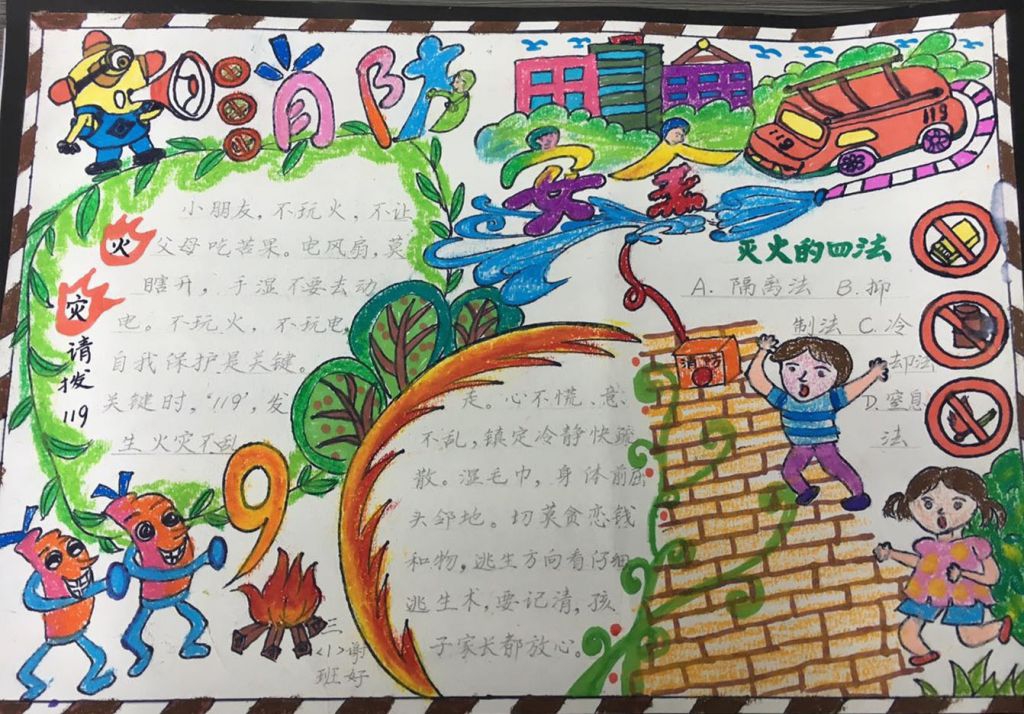 消防
安全
119
119
小朋友，不玩火，不让
火
父母吃苦果。电风扇，莫
瞎开，手湿不要去动
灾
电。不玩火，不玩电，
请
自我保护是关键。
拨
关键时，‘119’，发
119
生火灾不乱
走。心不慌，意、
不乱，镇定冷静快疏
散。湿毛巾，身体前屈
头邻地。切莫贪恋钱
和物，逃生方向看仔细
逃生术，要记清，孩
子家长都放心。
灭火的四法
A. 隔离法 B. 抑
制法 C. 冷
却法
D. 窒息
法
消防
三
<1>谢
班好